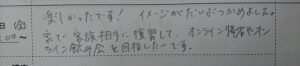 (金)
00~
楽しかったです! イメージがだいぶつかめました。
家で家族相手に復習して、オンライン帰省やオン
ライン飲み会を目指したいです。